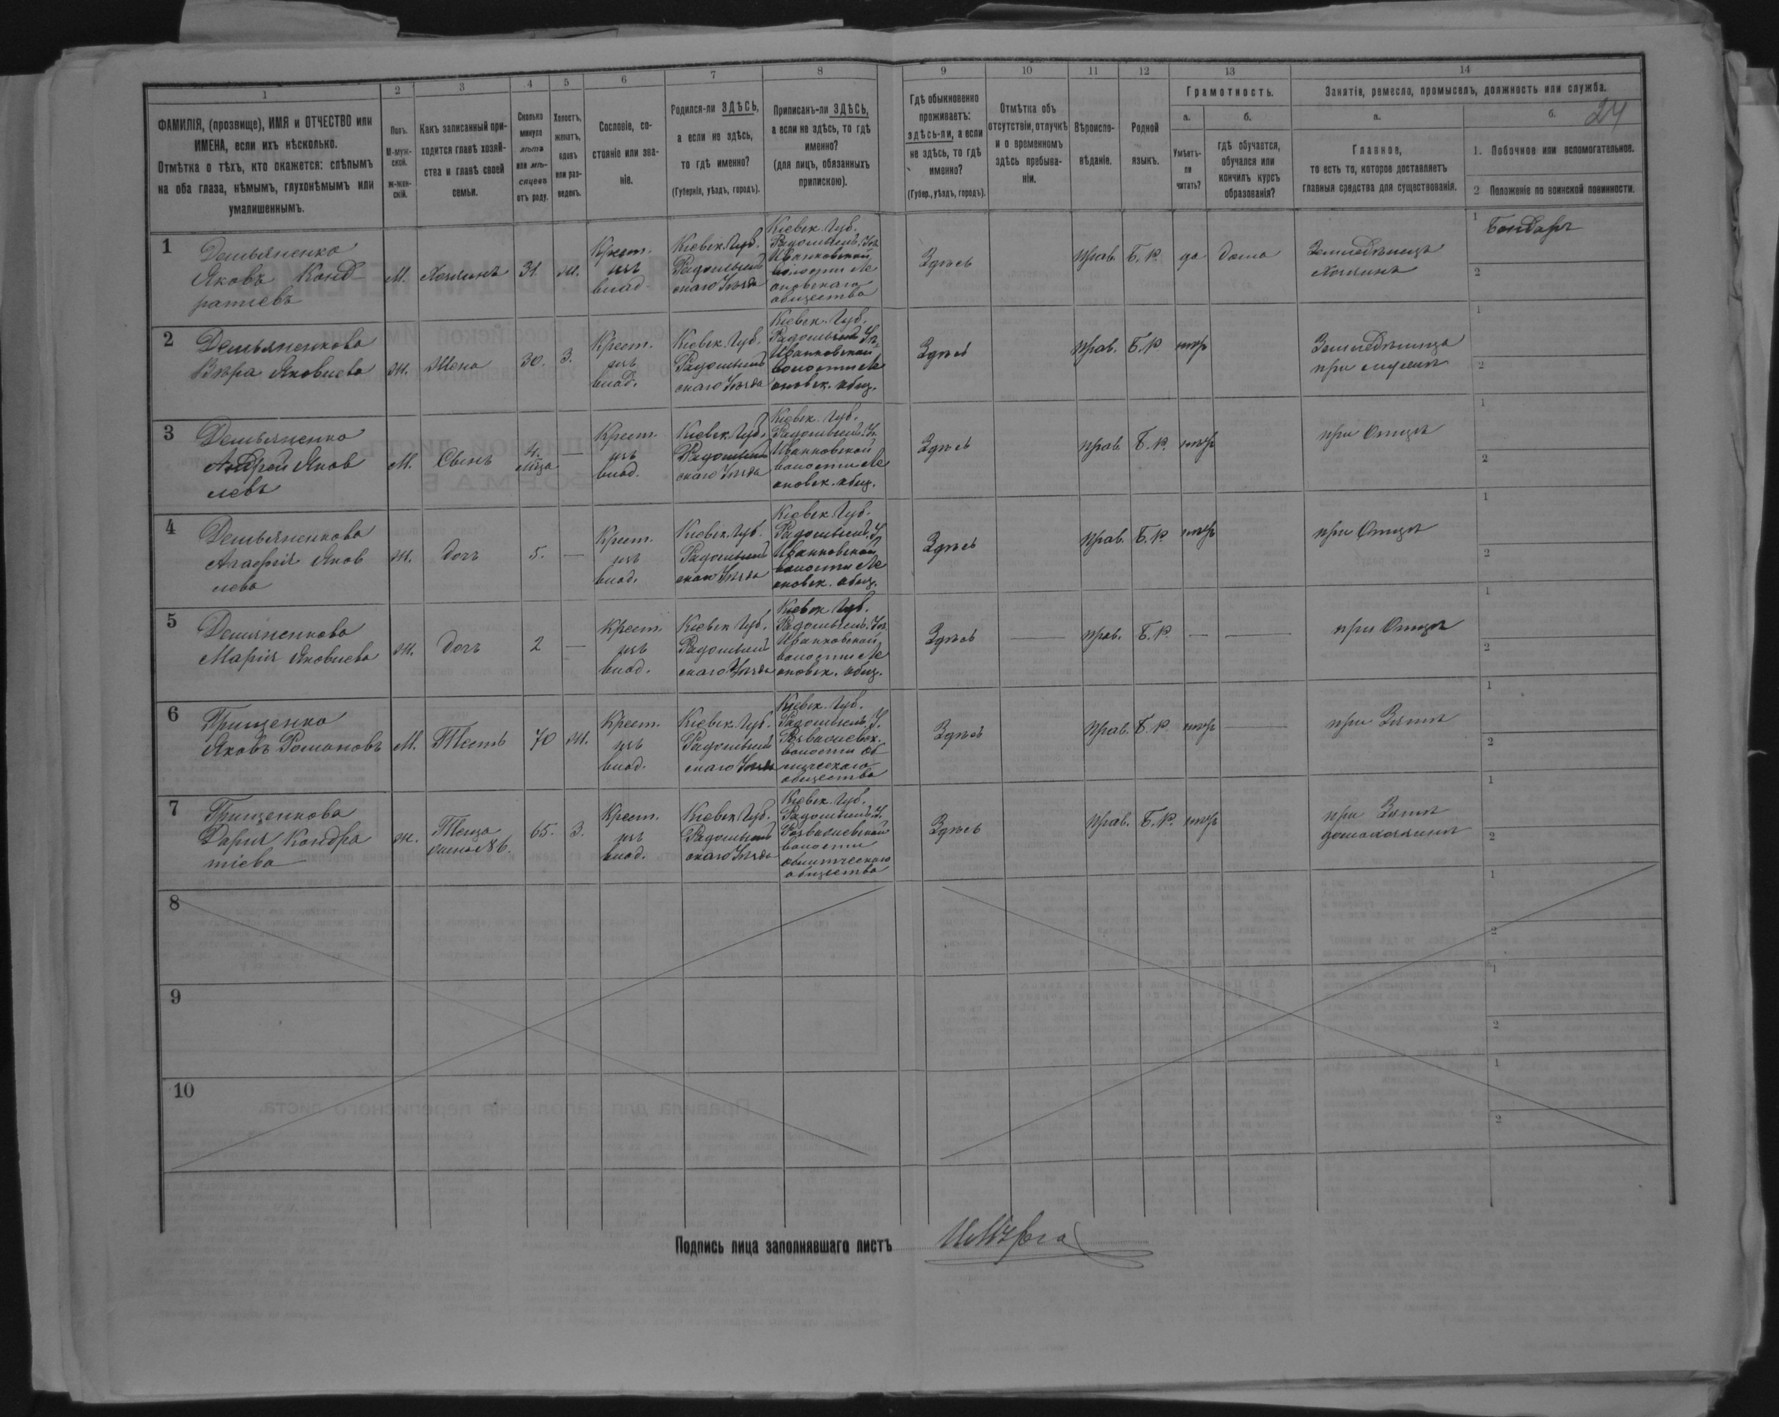 1 2 3 4 5 6 7 8 9 10 11 12 13 14
ФАМИЛІЯ, (прозвище), ИМЯ и ОТЧЕСТВО или
ИМЕНА, если ихъ нѣсколько.
Отмѣтка о тѣхъ, кто окажется: слѣпымъ
на оба глаза, нѣмымъ, глухонѣмымъ или
умалишеннымъ.
Полъ.
М-муж-
ской.
ж-жен-
скій.
Какъ записанный при-
ходится главѣ хозяй-
ства и главѣ своей
семьи.
Сколько
минуло
лѣтъ
или мѣ-
сяцевъ
отъ роду.
Холостъ,
женатъ,
вдовъ
или раз-
веденъ.
Сословіе, со-
стояніе или зва-
ніе.
Родился-ли ЗДѢСЬ,
а если не здѣсь,
то гдѣ именно?
(Губернія, уѣздъ, городъ).
Приписанъ-ли ЗДѢСЬ,
а если не здѣсь, то гдѣ
именно?
(для лицъ, обязанныхъ
припискою).
Гдѣ обыкновенно
проживаетъ:
здѣсь-ли, а если
не здѣсь, то гдѣ
именно?
(Губер., уѣздъ, городъ).
Отмѣтка объ
отсутствіи, отлучкѣ
и о временномъ
здѣсь пребыва-
ніи.
Вѣроиспо-
вѣданіе.
Родной
языкъ.
Грамотность.
а.
Умѣетъ-
ли
читать?
б.
гдѣ обучается,
обучался или
кончилъ курсъ
образованія?
Занятіе, ремесло, промыселъ, должность или служба.
а.
Главное,
то есть то, которое доставляетъ
главныя средства для существованія.
б.
24
1. Побочное или вспомогательное.
2 Положеніе по воинской повинности.
1
Демьяненко
Яковъ Конд
ратіевъ
М. Хозяинъ 31. ж.
Крест.
изъ
влад.
Кіевск. Губ.
Радомысль
скаго Уѣзда
Кіевск. Губ.
Радомысл. Уѣз.
Иванковской
волости
общества
Здѣсь прав. Б. Р. да дома
Земледѣлецъ
хозяинъ
1 Бондарь
2
2
Демьяненкова
Вѣра Яковлева
ж. Жена 30. З.
Крест.
изъ
влад.
Кіевск. Губ.
Радомысль
скаго Уѣзда
Кіевск. Губ.
Радомысл. Уѣз.
Иванковской
волости
общ.
Здѣсь прав. Б. Р. нтр
Земледѣлица
при мужѣ
1
2
3
Демьяненко
Андрей Яков
левъ
М. Сынъ —
Крест.
изъ
влад.
Кіевск. Губ.
Радомысль
скаго Уѣзда
Кіевск. Губ.
Радомысл. У.
Иванковской
волости
общ.
Здѣсь прав. Б. Р.
при Отцѣ
1
2
4
Демьяненкова
Агафія Яков
лева
ж. дочь 5. —
Крест.
изъ
влад.
Кіевск. Губ.
Радомысль
скаго Уѣзда
Кіевск. Губ.
Радомысл. У.
Иванковской
волости
общ.
Здѣсь прав. Б. Р.
при Отцѣ
1
2
5
Марія Яковлева
ж. дочь 2 —
Крест.
изъ
влад.
Кіевск Губ.
Радомысль
скаго Уѣзда
Кіевск. Губ.
Радомысл. Уѣз.
Иванковской
волости
общ.
Здѣсь — прав. Б. Р. — —
при Отцѣ
1
2
6
Грищенко
Яковъ Романовъ
М. Тесть 70 ж.
Крест.
изъ
влад.
Кіевск. Губ.
Радомысль
скаго Уѣзда
Кіевск. Губ.
Радомысл. У.
волости
общества
Здѣсь прав. Б. Р. —
при Зятѣ
1
2
7
Грищенкова
Дарія Кондра
тіева
ж. Теща 65. З.
Крест.
изъ
влад.
Кіевск Губ.
Радомысль
скаго Уѣзда
Кіевск. Губ.
Радомысл. У.
волости
общества
Здѣсь прав. Б. Р.
при Зятѣ
1
2
8
1
2
9
1
2
10
1
2
Подпись лица заполнявшаго листъ